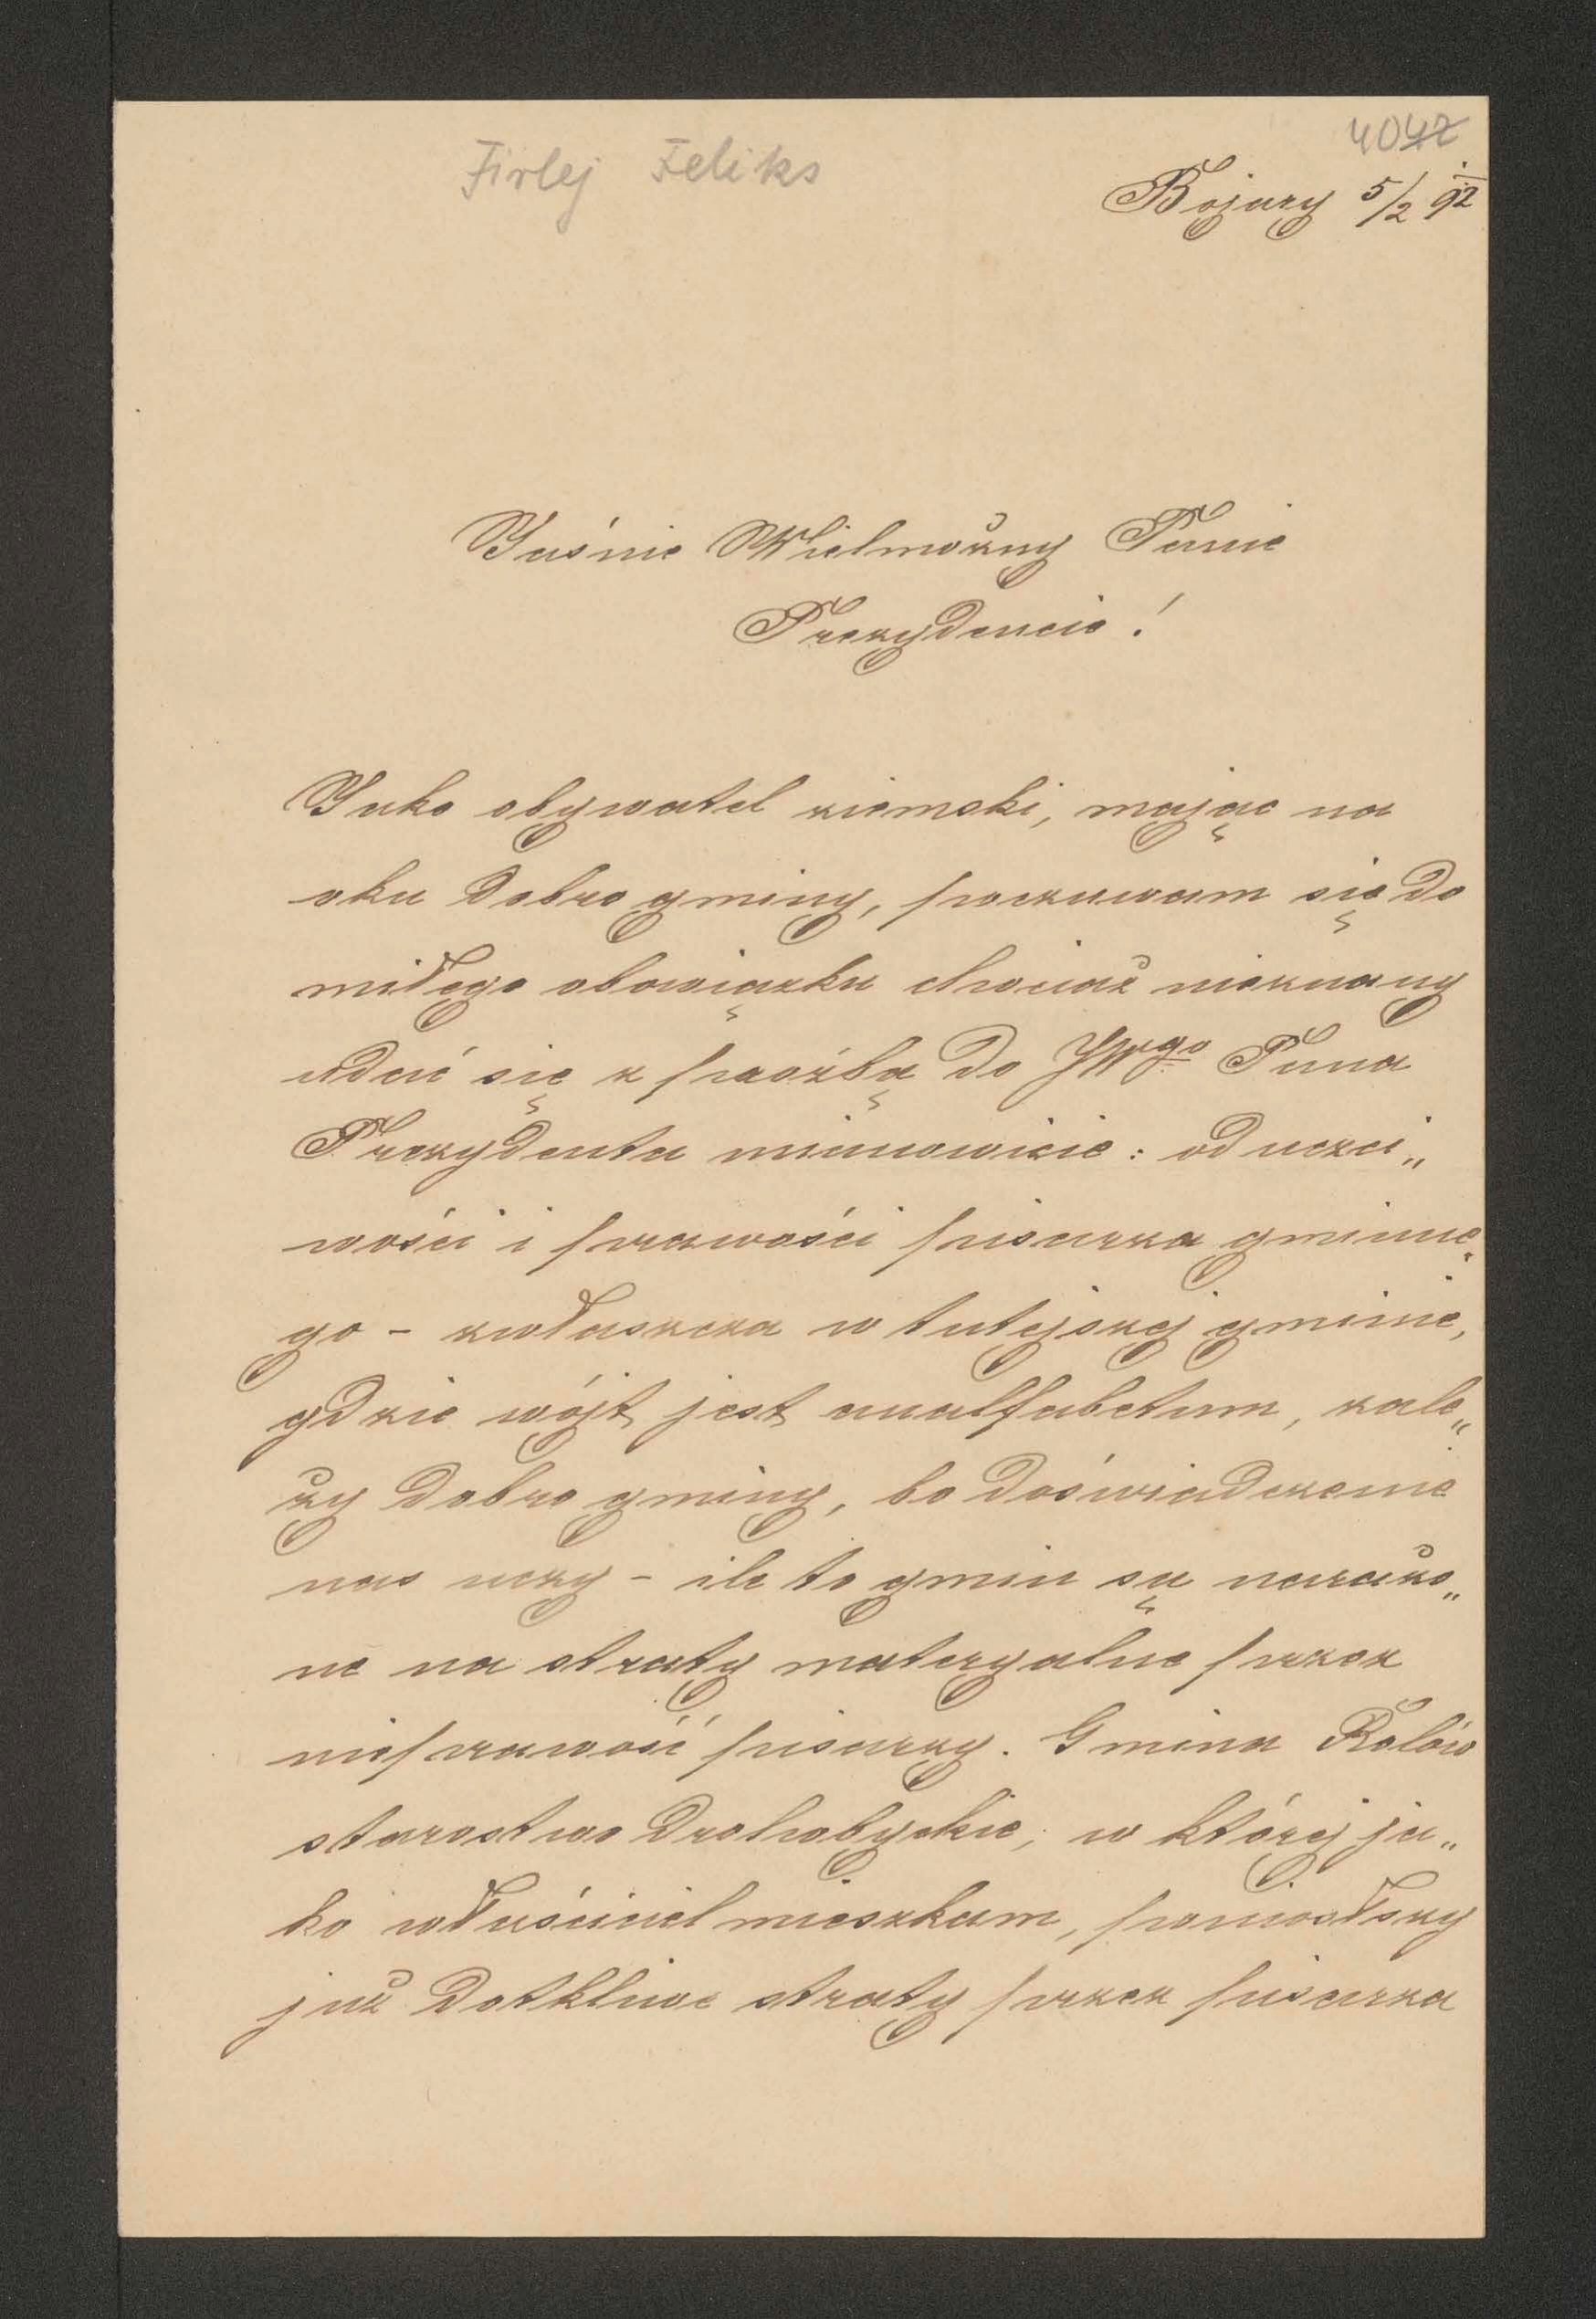 4042
Firlej Feliks
Bojary 5/2 92
Jaśnie Wielmożny Panie
Prezydencie!
Jako obywatel ziemski, mając na
oku dobro gminy, poczuwam się do
miłego obowiązku chociaż nieznany
udać się z proźbą do JWgo Pana
Prezydenta mianowicie: od uczci„
wości i prawości pisarza gminne„
go – zwłaszcza w tutejszej gminie,
gdzie wójt jest analfabetam, zale„
ży dobro gminy, bo doświadczenie
nas uczy – ile to gmin są narażo„
ne na straty materyalne przez
nieprawość pisarzy. Gmina Rolów
starostwo drohobyckie, w której ja„
ko właściciel mieszkam, poniosłszy
już dotkliwe straty przez pisarza